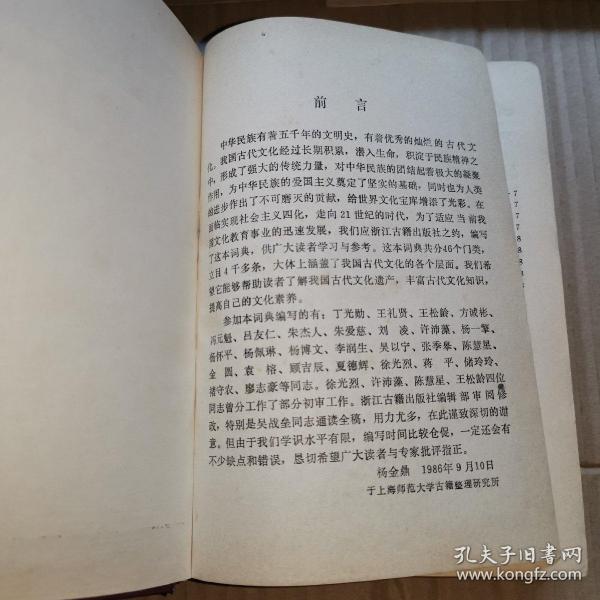 前 言
中华民族有着五千年的文明史，有着优秀的灿烂的古代文
化。我国古代文化经过长期积累，潜入生命，积淀于民族精神之
中，形成了强大的传统力量，对中华民族的团结起着极大的凝聚
作用，为中华民族的爱国主义奠定了坚实的基础，同时也为人类
的进步作出了不可磨灭的贡献，给世界文化宝库增添了光彩。在
面临实现社会主义四化，走向21世纪的时代，为了适应当前我
国文化教育事业的迅速发展，我们应浙江古籍出版社之约，编写
了这本词典，供广大读者学习与参考。这本词典共分46个门类，
立目4千多条，大体上涵盖了我国古代文化的各个层面。我们希
望它能够帮助读者了解我国古代文化遗产，丰富古代文化知识，
提高自己的文化素养。
参加本词典编写的有：丁光勋、王礼贤、王松龄、方诚彬、
冯元魁、吕友仁、朱杰人、朱爱慈、刘 凌、许沛藻、杨一擎、
杨怀平、杨佩琳、杨博文、李润生、吴以宁、张季皋、陈慧星、
金 圆、袁 榕、顾吉辰、夏德辉、徐光烈、蒋 平、储玲玲、
褚守农、廖志豪等同志。徐光烈、许沛藻、陈慧星、王松龄四位
同志曾分工作了部分初审工作。浙江古籍出版社编辑部审阅修
改，特别是吴战垒同志通读全稿，用力尤多，在此谨致深切的谢
意。但由于我们学识水平有限，编写时间比较仓促，一定还会有
不少缺点和错误，恳切希望广大读者与专家批评指正。
杨金鼎 1986年9月10日
于上海师范大学古籍整理研究所
7
7
7
7
8
8
8
孔夫子旧书网
www.kongfz.com